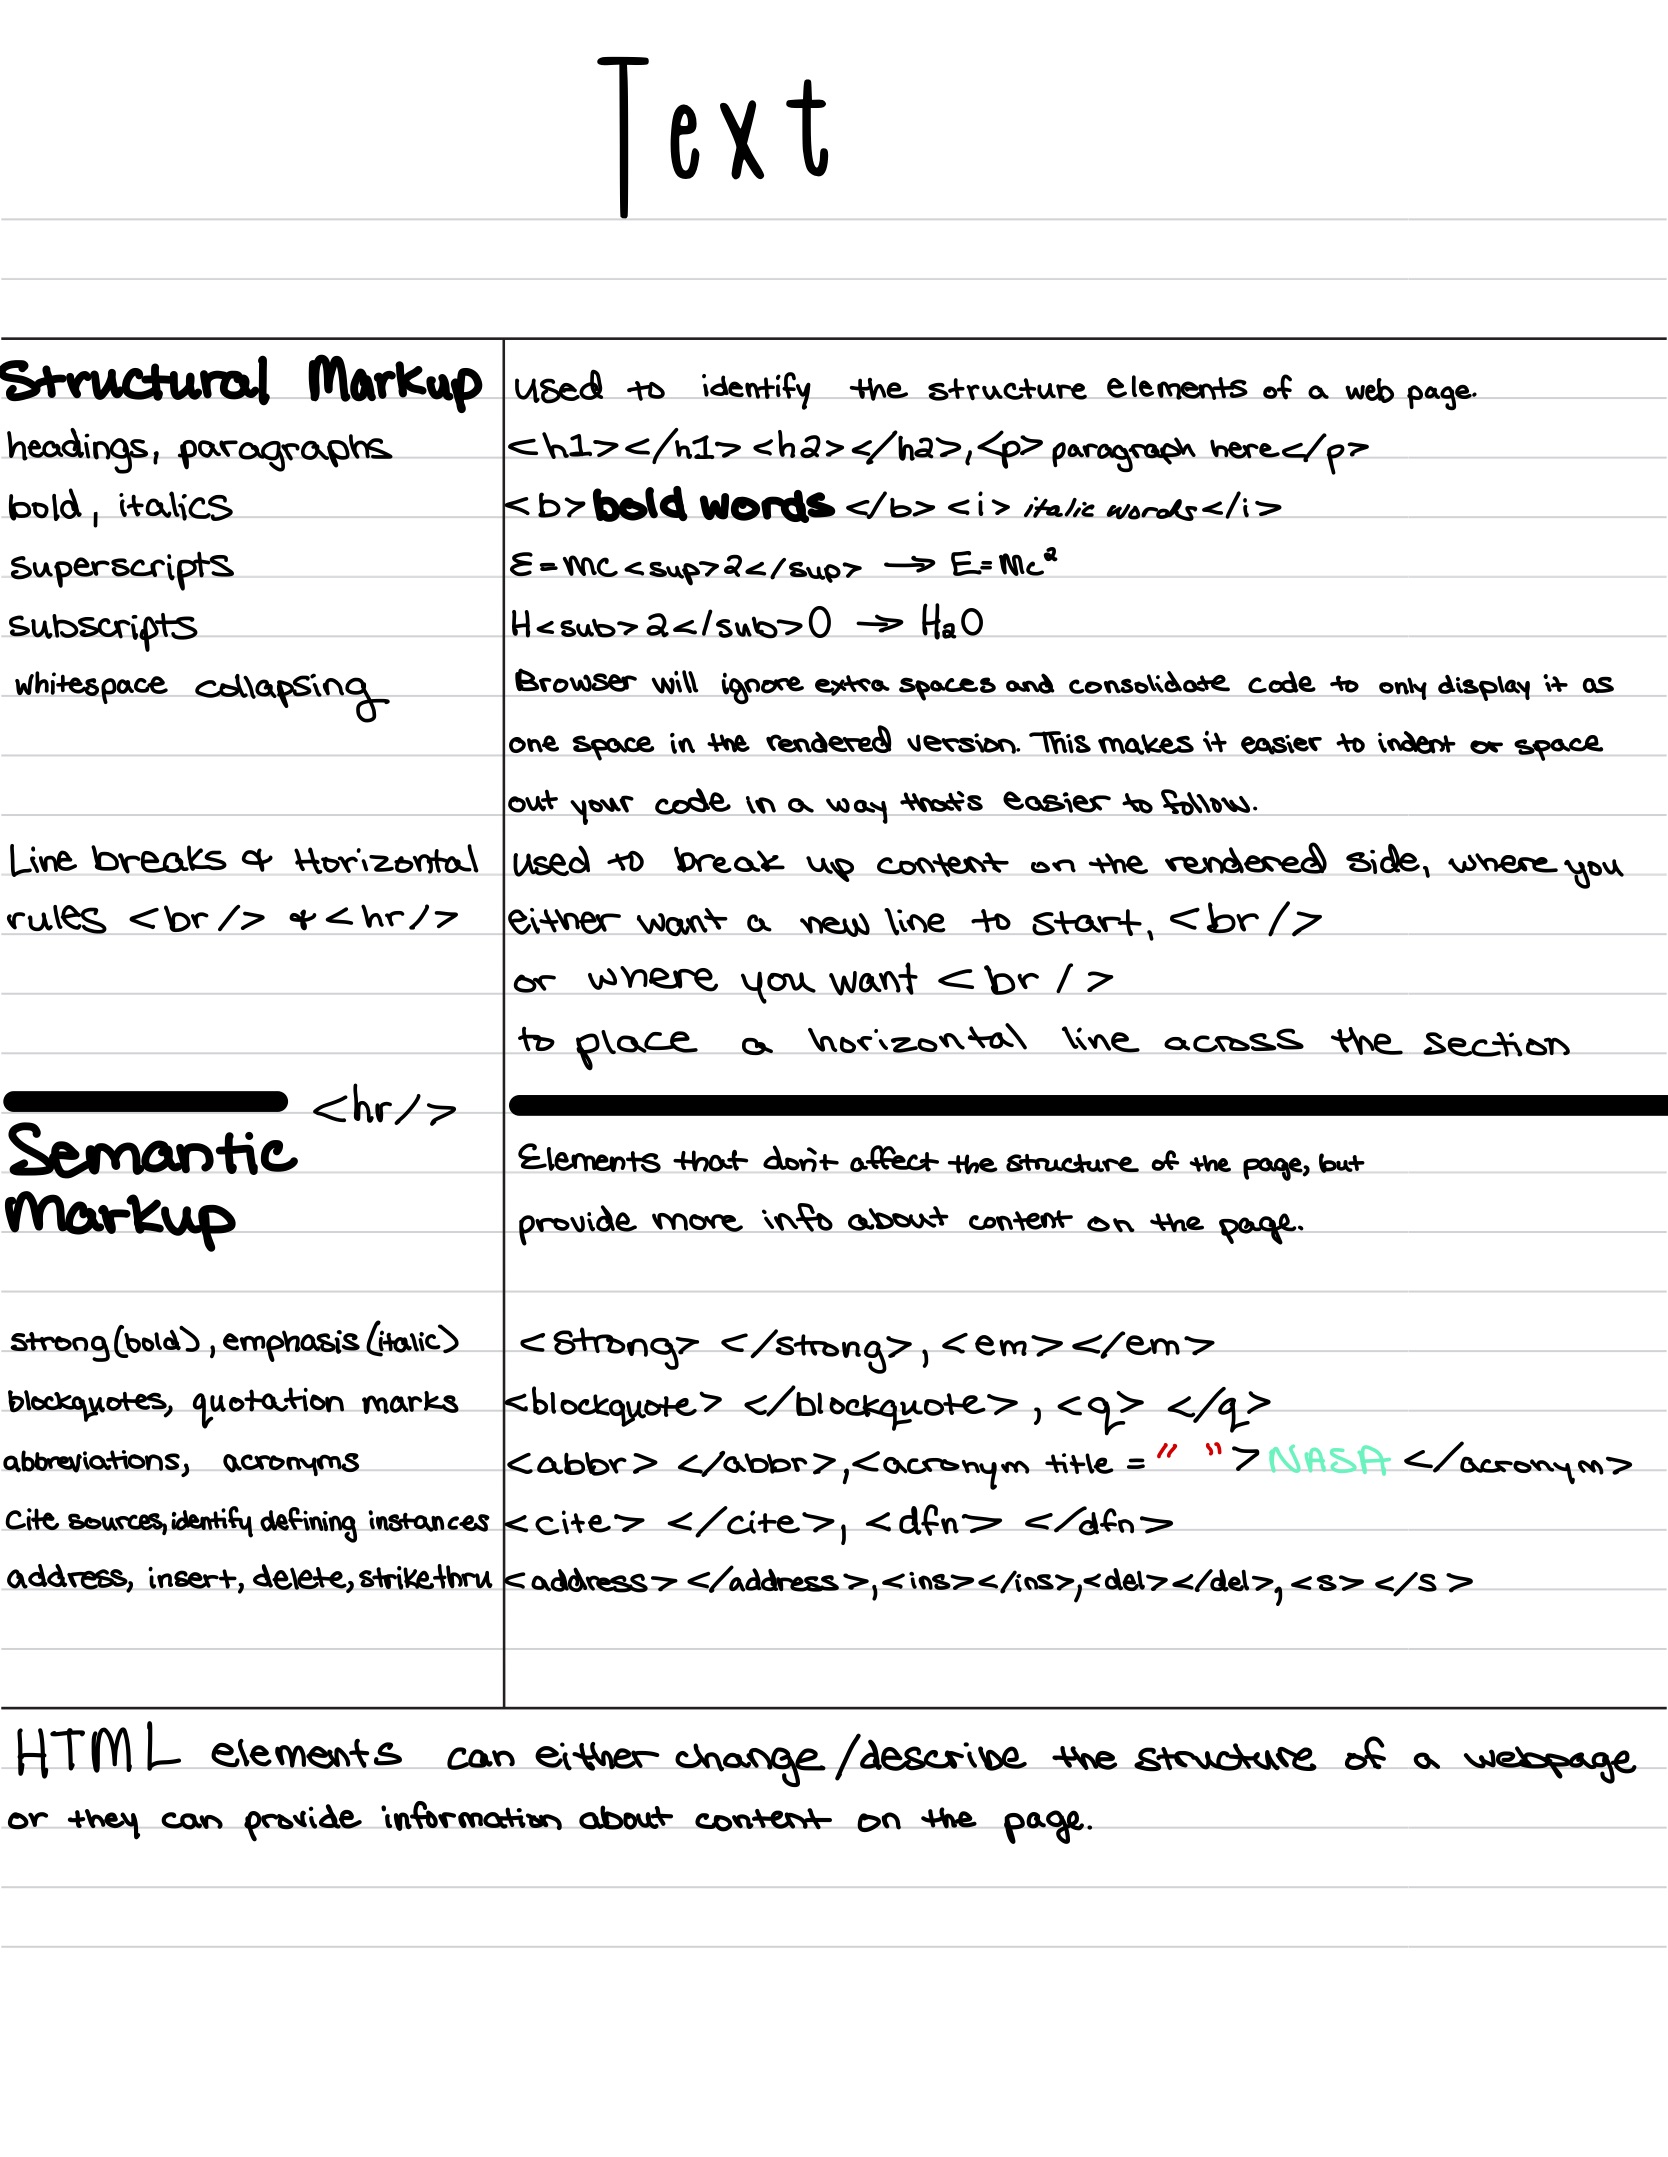 Text
Structural Markup used to identify the structure elements of a web page.
headings, paragraphs <h1></h1> <h2></h2>, <p> paragraph here</p>
bold, italics <b> bold words </b> <i> italic words</i>
superscripts E=mc<sup>2</sup> → E=Mc²
subscripts H<sub>2</sub>O → H₂O
Whitespace collapsing Browser will ignore extra spaces and consolidate code to only display it as
one space in the rendered version. This makes it easier to indent or space
out your code in a way that's easier to follow.
Line breaks & Horizontal used to break up content on the rendered side, where you
rules <br/> & <hr/> either want a new line to start, <br/>
or where you want <br/>
to place a horizontal line across the section
<hr/>
Semantic Elements that don't affect the structure of the page, but
Markup provide more info about content on the page.
strong(bold), emphasis(italic) <strong> </strong>, <em></em>
blockquotes, quotation marks <blockquote> </blockquote>, <q> </q>
abbreviations, acronyms <abbr> </abbr>, <acronym title = " "> NASA </acronym>
Cite sources, identify defining instances <cite> </cite>, <dfn> </dfn>
address, insert, delete, strikethru <address> </address>, <ins></ins>, <del></del>, <s> </s>
HTML elements can either change/describe the structure of a webpage
or they can provide information about content on the page.